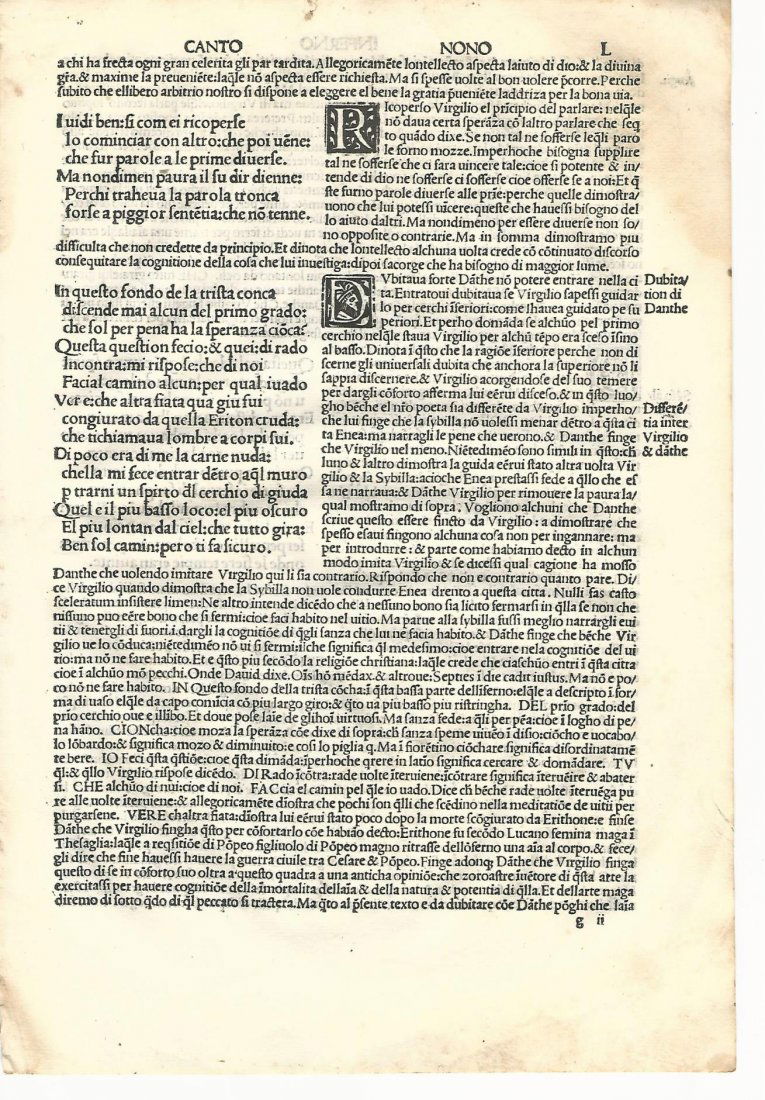 CANTO NONO L
a chi ha frecta ogni gran celerita gli par tardita. Allegoricamēte lontellecto aspecta laiuto di dio:& la diuina
gr̄a.& maxime la preueniēte:laq̄le nō aspecta essere richiesta. Ma si spesse uolte al bon uolere p̄corre. Perche
subito che ellibero arbitrio nostro si dispone a eleggere el bene la gratia p̄ueniēte laddriza per la bona uia.
Iuidi ben:si com ei ricoperse
lo cominciar con altro:che poi uēne:
che fur parole a le prime diuerse.
Ma nondimen paura il su dir dienne:
Perchi traheua la parola tronca
forse a piggior sentētia:che nō tenne.
RIcoperso Virgilio el prīcipio del parlare: nelq̄le
nō daua certa sperāza cō laltro parlare che seq
to quādo dixe. Se non tal ne sofferse leq̄li paro
le forno mozze. Imperhoche bisogna supplire
tal ne sofferse che ci fara uincere tale:cioe si potente & in/
tende di dio ne sofferse ci sofferse cioe offerse se a noi: Et q̄
ste furno parole diuerse alle prīe: perche quelle dimostra/
uono che lui potessi uīcere: queste che hauessi bisogno del
lo aiuto daltri. Ma nondimeno per essere diuerse non so/
no opposite o contrarie. Ma in somma dimostramo piu
difficulta che non credette da principio. Et dinota che lontellecto alchuna uolta crede cō cōtinuato discorso
consequitare la cognitione della cosa che lui inuestiga: dipoi sacorge che ha bisogno di maggior lume.
In questo fondo de la trista conca
discende mai alcun del primo grado:
che sol per pena ha la speranza ciōca?
Questa question fecio:& quei:di rado
Incontra:mi rispose:che di noi
Facial camino alcun:per qual iuado
Ver e:che altra fiata qua giu fui
congiurato da quella Eriton cruda:
che tichiamaua lombre a corpi sui.
Di poco era di me la carne nuda:
chella mi fece entrar dētro aq̄l muro
p trarni un spirto dl̄ cerchio di giuda
Quel e il piu basso loco:el piu oscuro
El piu lontan dal ciel:che tutto gira:
Ben sol camin:pero ti fa sicuro.
DVbitaua forte Dāthe nō potere entrare nella ci
ta. Entratoui dubitaua se Virgilio sapessi guidar
lo per cerchi īferiori: come lhauea guidato pe su
periori. Et perho domāda se alchūo pel primo
cerchio nelq̄le staua Virgilio per alchū tēpo era sceso īsino
al basso. Dinota ī q̄sto che la ragiōe īferiore perche non di
scerne gli uniuersali dubita che anchora la superiore nō li
sappia discernere.& Virgilio acorgendose del suo temere
per dargli cōforto afferma lui eērui disceso.& in q̄sto luo/
gho bēche el nr̄o poeta sia differēte da Virgilio imperho/
che lui finge che la sybilla nō uolessi menar dētro a q̄sta ci
ta Enea: ma narragli le pene che uerono.& Danthe finge
che Virgilio uel meno. Niētedimēo sono simili in q̄sto:ch̄
luno & laltro dimostra la guida eērui stato altra uolta Vir
gilio & la Sybilla:acioche Enea prestassi fede a q̄llo che es
sa ne narraua:& Dāthe Virgilio per rimouere la paura la/
qual mostramo di sopra. Vogliono alchuni che Danthe
scriue questo essere fincto da Virgilio: a dimostrare che
spesso esaui fingono alchuna cosa non per ingannare: ma
per introdurre: & parte come habiamo decto in alchun
modo imita Virgilio & se dicessi qual cagione ha mosso
Dubita/
tion di
Danthe
Differē/
tia inter
Virgilio
& dāthe
Danthe che uolendo imitare Virgilio qui li sia contrario. Rispondo che non e contrario quanto pare. Di/
ce Virgilio quando dimostra che la Sybilla non uole condurre Enea drento a questa citta. Nulli fas casto
sceleratum insistere limen: Ne altro intende dicēdo che a nessuno bono sia licito fermarsi in q̄lla se non che
nissuno puo eēre bono che si fermi:cioe faci habito nel uitio. Ma parue alla sybilla fussi meglio narrargli eui
tii & tenergli di fuori.i.dargli la cognitiōe di q̄gli sanza che lui ne facia habito.& Dāthe finge che bēche Vir
gilio ue lo cōduca:niētedimēo nō ui si fermi:ilche significa q̄l medesimo:cioe entrare nela cognitiōe del ui
tio:ma nō ne fare habito. Et e q̄sto piu secōdo la religiōe christiana:laq̄le crede che ciaschūo entri ī q̄sta citta
cioe ī alchūo mō pecchi. Onde Dauid dixe. Oīs hō mēdax.& altroue: Septies ī die cadit iustus. Ma nō e po/
co nō ne fare habito. IN Questo fondo della trista cōcha: ī q̄sta bassa parte dellīferno:elq̄le a descripto ī for/
ma di uaso elq̄le da capo comīcia cō piu largo giro:& q̄to ua piu basso piu ristringha. DEL prīo grado:del
prīo cerchio oue e illibo. Et doue pose laīe de glihoī uirtuosi. Ma sanza fede:a q̄li per pēa:cioe ī logho di pe/
na hāno. CIONcha:cioe moza la sperāza cōe dixe di sopra:ch̄ sanza speme uiuēo ī disio:ciōcho e uocabo/
lo lōbardo:& significa mozo & diminuto:e cosi lo piglia q. Ma ī fiorētino ciōchare significa disordinatamē
te bere. IO Feci q̄sta q̄stiōe:cioe q̄sta dimāda:īperhoche q̄rere in latīo significa cercare & domādare. TV
q̄l:& q̄llo Virgilio rispose dicēdo. DI Rado īcōtra:rade uolte īteruiene:īcōtrare significa īteruēire & abater
si. CHE alchūo di nui:cioe di noi. FACcia el camin pel q̄le io uado. Dice ch̄ bēche rade uolte īteruēga pu
re alle uolte īteruiene:& allegoricamēte dīostra che pochi son q̄lli che scēdino nella meditatiōe de uitii per
purgarsene. VERE chaltra fiata:dīostra lui eērui stato poco dopo la morte scōgiurato da Erithone:e finse
Dāthe che Virgilio fingha q̄sto per cōfortarlo cōe habiāo decto: Erithone fu secōdo Lucano femina maga ī
Thesaglia:laq̄le a reqsitiōe di Pōpeo figliuolo di Pōpeo magno ritrasse dellōferno una aīa al corpo.& fece/
gli dire che fine hauessi hauere la guerra ciuile tra Cesare & Pōpeo. Finge adonq; Dāthe che Virgilio finga
questo di se in cōforto suo oltra a questo quadra a una anticha opiniōe:che zoroastre īuētore di q̄sta arte la
exercitassi per hauere cognitiōe della īmortalita dellaīa & della natura & potentia di q̄lla. Et dellarte maga
diremo di sotto q̄do di q̄l peccato si tractera. Ma q̄to al p̄sente texto e da dubitare cōe Dāthe pōghi che laīa
g ii